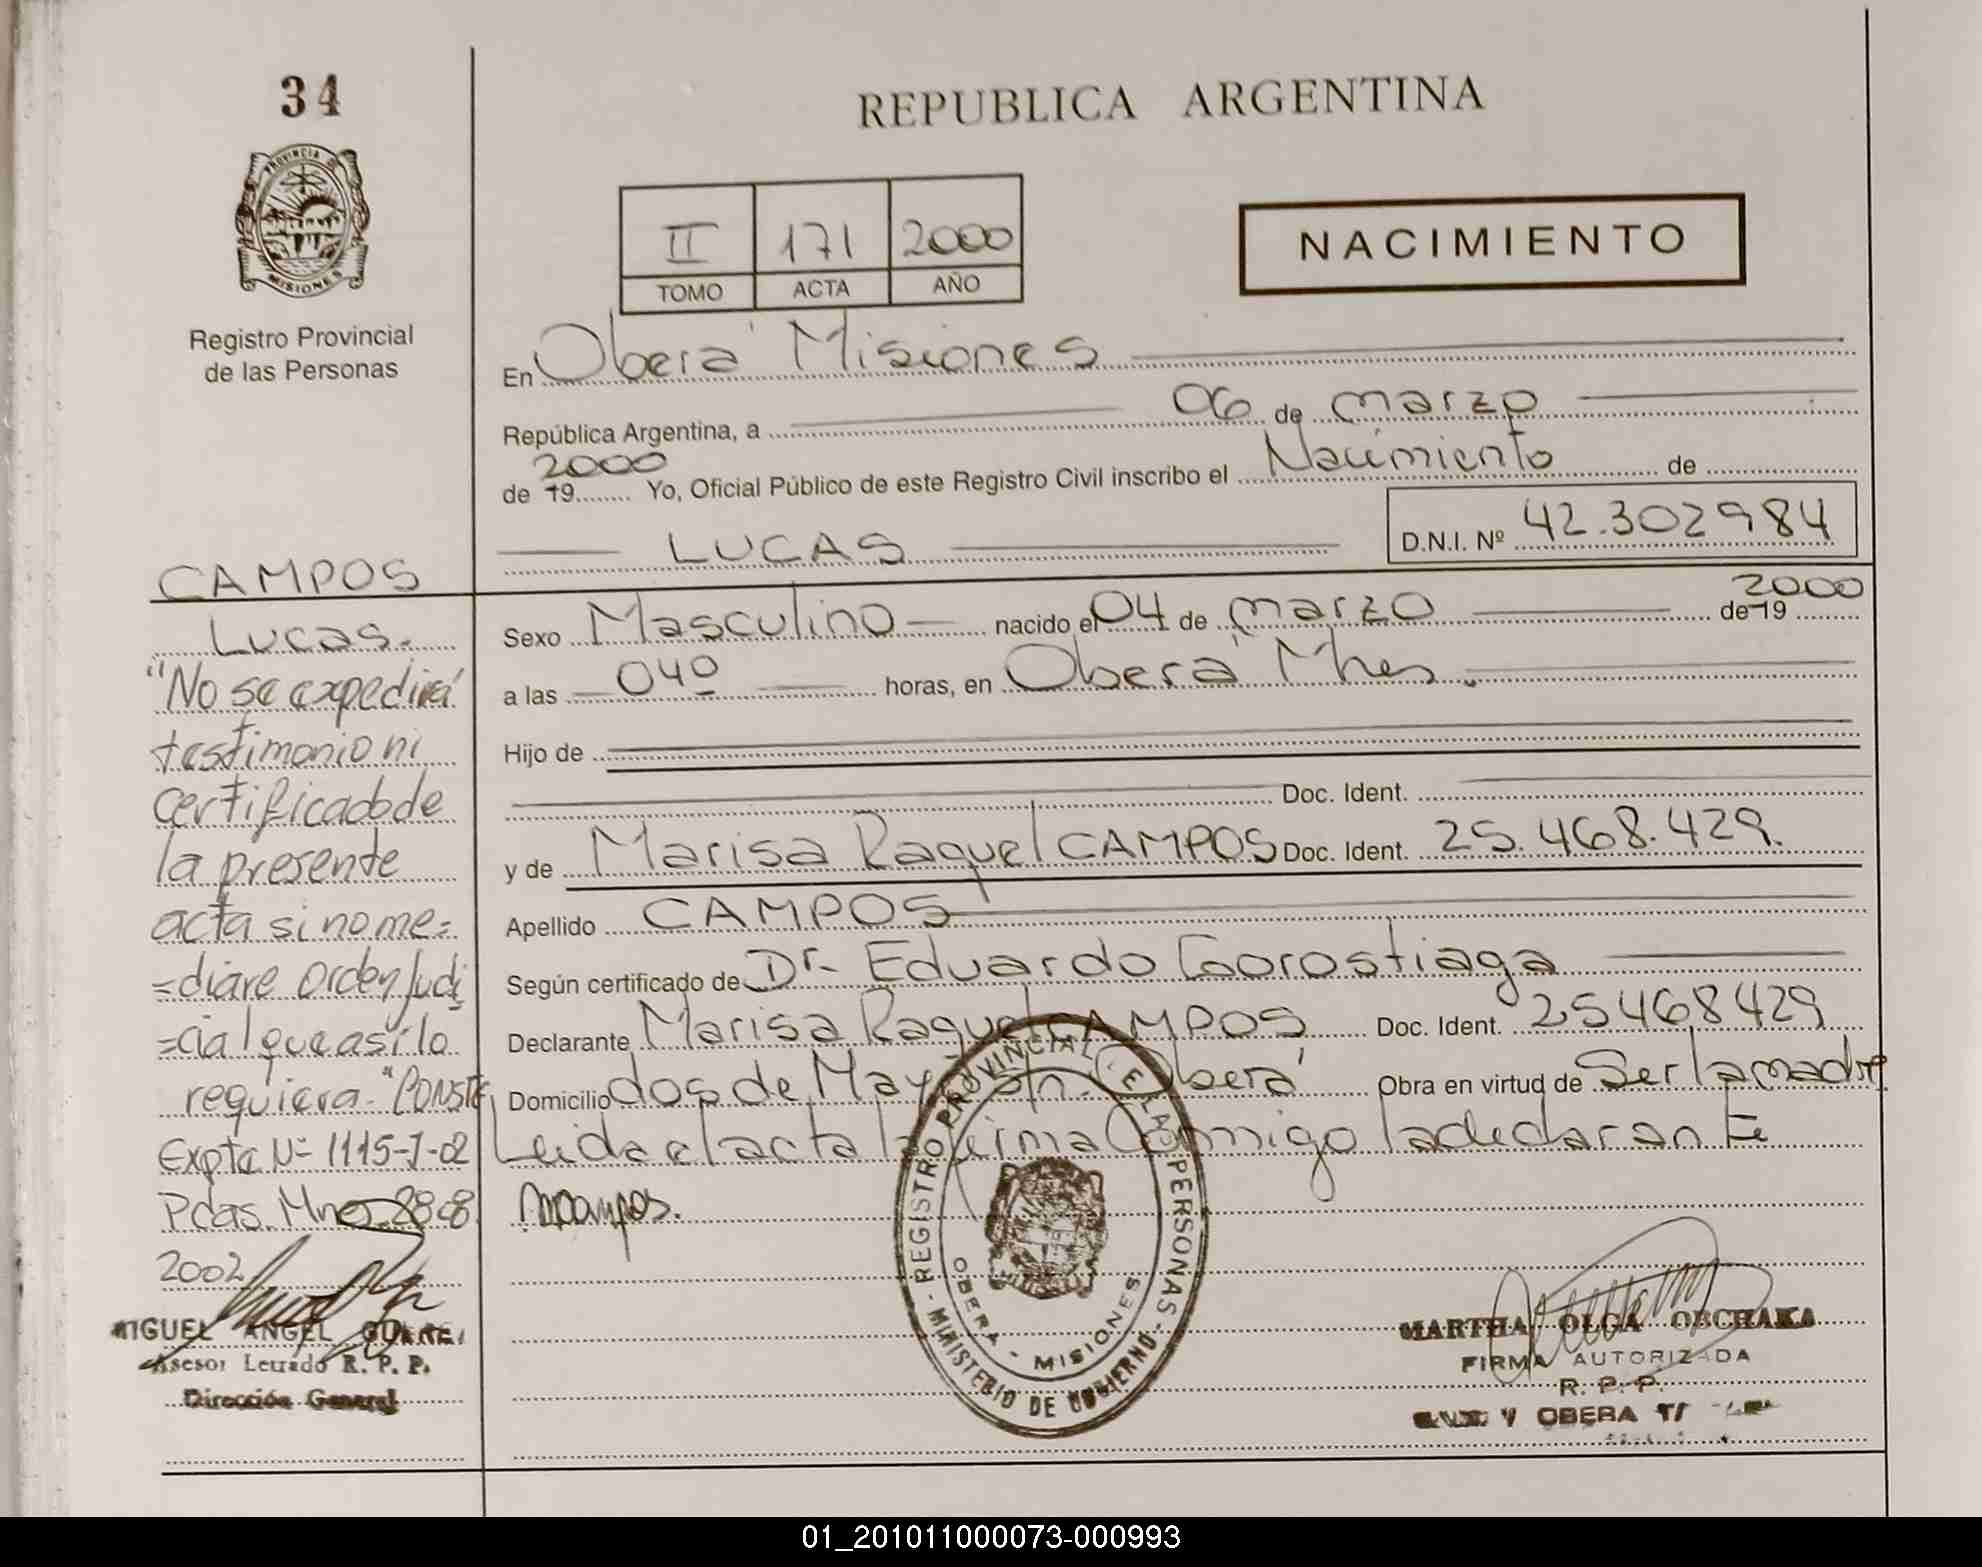 34
PROVINCIA DE
MISIONES
Registro Provincial
de las Personas
REPUBLICA ARGENTINA
II 171 2000
TOMO ACTA AÑO
NACIMIENTO
En Oberá Misiones
República Argentina, a 06 de marzo
2000
de 19 Yo, Oficial Público de este Registro Civil inscribo el Nacimiento de
LUCAS D.N.I. Nº 42.302984
CAMPOS
Lucas.
"No se expedirá
testimonio ni
certificado de
la presente
acta si no me=
=diare orden judi
=cial que así lo
requiera-"CONSTE
Expte Nº 1115-J-02
Pdas. Mnes
2002
MIGUEL ANGEL
Asesor Letrado R. P. P.
Dirección General
Sexo Masculino nacido el 04 de marzo de 19 2000
a las 04º horas, en Oberá Mnes.
Hijo de
Doc. Ident.
y de Marisa Raquel CAMPOS Doc. Ident. 25.468.429.
Apellido CAMPOS
Según certificado de Dr. Eduardo Gorostiaga
Declarante Marisa Raquel CAMPOS Doc. Ident. 25468429
Domicilio dos de Mayo Oberá Obra en virtud de Ser la madre
Leida el acta la firma Conmigo la declarante
MCampos.
REGISTRO PROVINCIAL DE LAS PERSONAS
OBERA - MISIONES
MINISTERIO DE GOBIERNO
MARTHA OLGA OBCHAKA
FIRMA AUTORIZADA
R. P. P.
OBERA
01_201011000073-000993